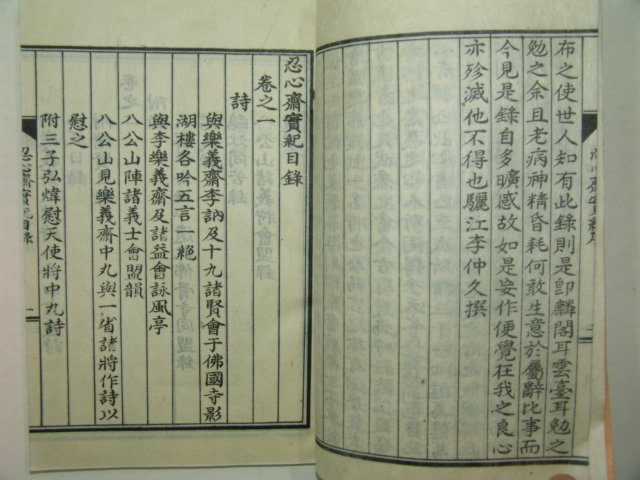 布之使世人知有此錄則是卽麟閣耳雲臺耳勉之
勉之余且老病神精昏耗何敢生意於屬辭比事而
今見是錄自多曠感故如是妄作便覺在我之良心
亦殄滅他不得也驪江李仲久撰
忍心齋實紀目錄
卷之一
詩
與樂義齋李訥及十九諸賢會于佛國寺影
湖樓各吟五言一絕
與李樂義齋及諸益會詠風亭
八公山陣諸義士會盟韻
八公山見樂義齋中九與一省諸將作詩以
慰之
附三子弘煒慰天使將中九詩
忍心齋實紀目錄
一